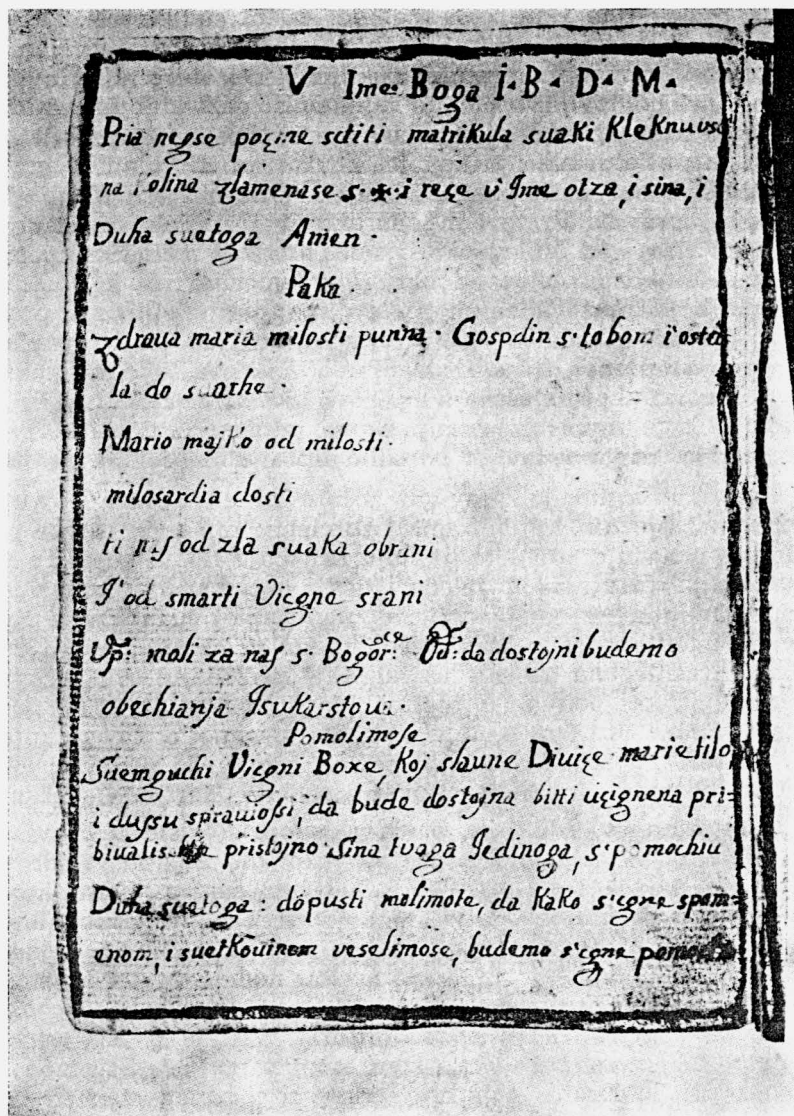 V Ime Boga I· B· D· M·
Pria negse poçine sctiti matrikula suaki Kleknuvsc
na Kolina zlamenase s·✠·i reçe v Ime otza, i sina, i
Duha suetoga Amen·
Paka·
Zdraua maria milosti punna· Gospdin s·tobom i osta
la do suarhe·
Mario majko od milosti·
milosardia dosti
ti nas od zla suaka obrani
I od smarti Vicgne srani
Vp: moli za nas s· Bogor:ce Od: da dostojni budemo
obechianja Isukarstoua·
Pomolimose
Suemguchi Vicgni Boxe, Koj slaune Diuiçe marie tilo,
i dussu sprauiossi, da bude dostojna bitti uçignena pri=
biualis pristojno Sina tuaga Jedinoga, s·pomochiu
Duha suetoga: dopusti molimote, da Kako s'cgne spom=
enom, i suetkouinom veselimose, budemo s'cgne